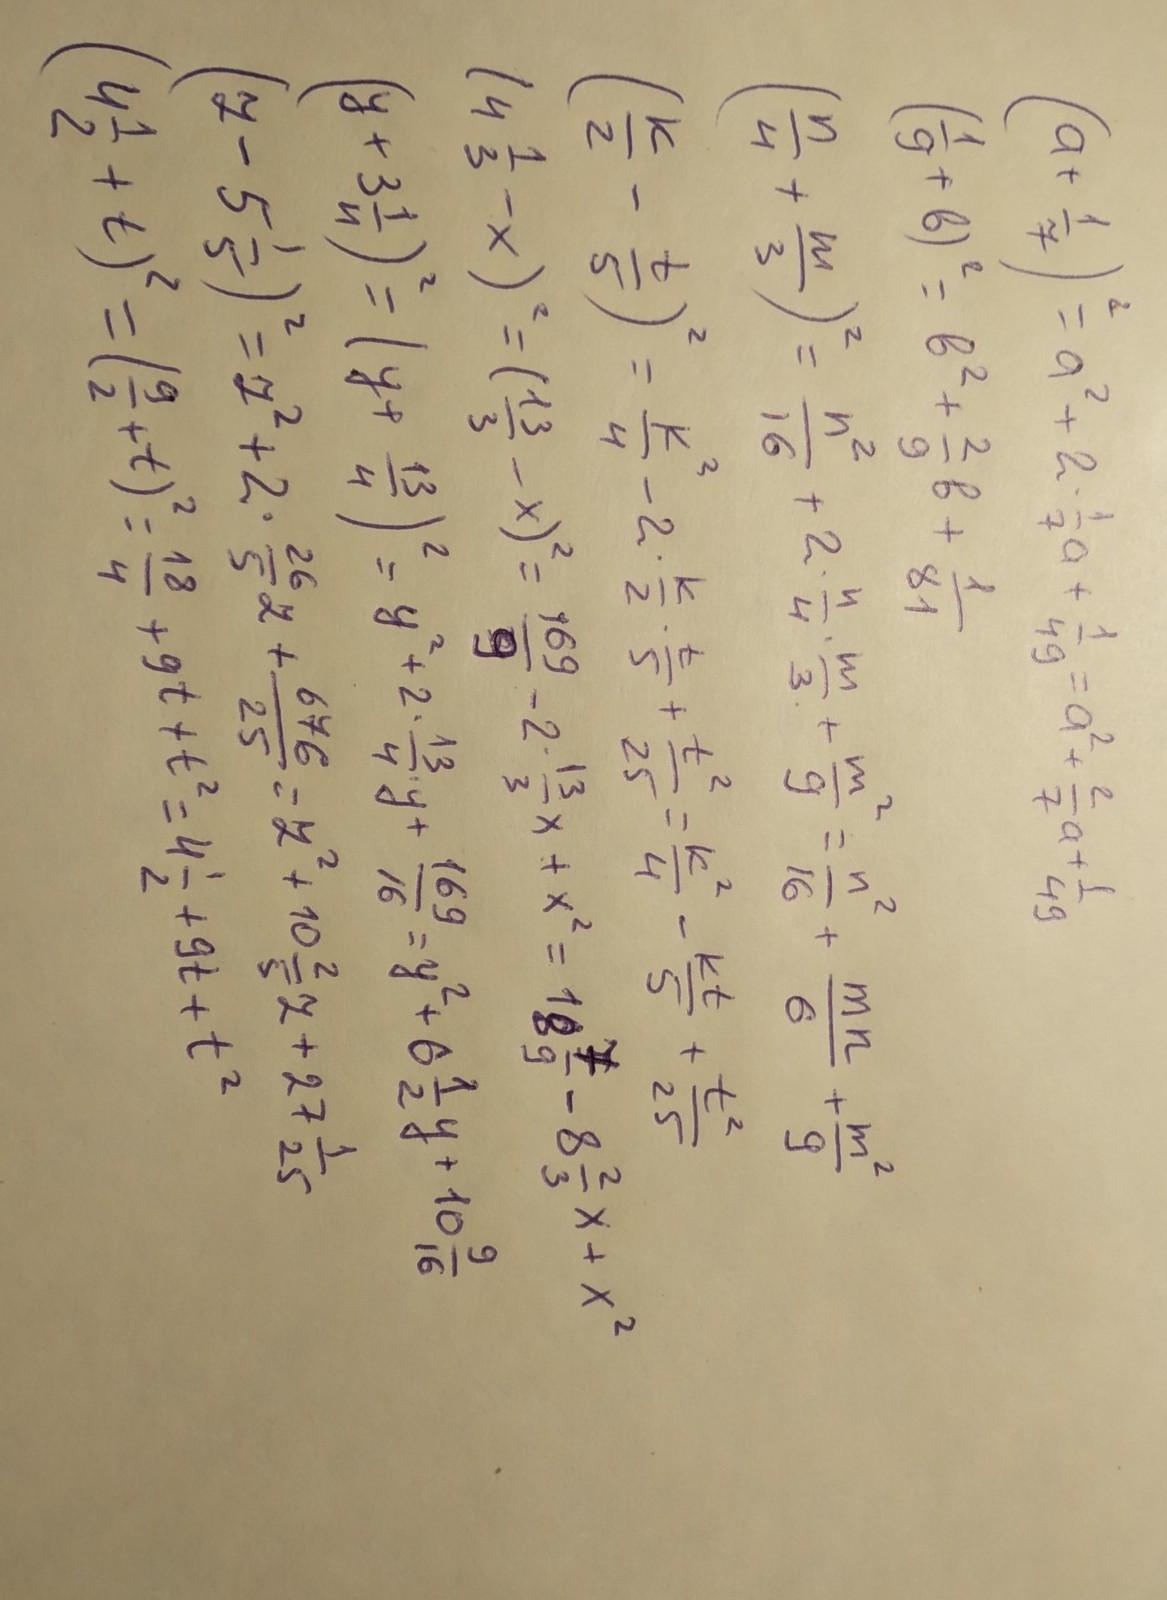 (a + 1/7)² = a² + 2·1/7a + 1/49 = a² + 2/7a + 1/49
(1/9 + b)² = b² + 2/9b + 1/81
(n/4 + m/3)² = n²/16 + 2·n/4·m/3 + m²/9 = n²/16 + mn/6 + m²/9
(k/2 - t/5)² = k²/4 - 2·k/2·t/5 + t²/25 = k²/4 - kt/5 + t²/25
(4 1/3 - x)² = (13/3 - x)² = 169/9 - 2·13/3x + x² = 18 7/9 - 8 2/3x + x²
(y + 3 1/4)² = (y + 13/4)² = y² + 2·13/4·y + 169/16 = y² + 6 1/2y + 10 9/16
(z - 5 1/5)² = z² + 2·26/5z + 676/25 = z² + 10 2/5z + 27 1/25
(4 1/2 + t)² = (9/2 + t)² = 18/4 + 9t + t² = 4 1/2 + 9t + t²